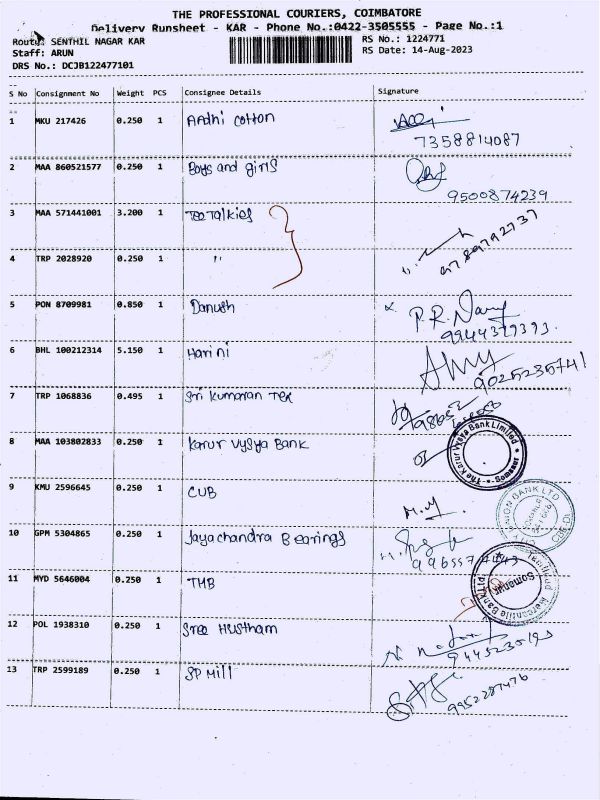 THE PROFESSIONAL COURIERS, COIMBATORE
Delivery Runsheet - KAR - Phone No.:0422-3505555 - Page No.:1
Route: SENTHIL NAGAR KAR
RS No.: 1224771
Staff: ARUN
RS Date: 14-Aug-2023
DRS No.: DCJB122477101
S No Consignment No Weight PCS Consignee Details Signature
1 MKU 217426 0.250 1 Aadhi cotton
7358814087
2 MAA 860521577 0.250 1 Boys and girls
9500874239
3 MAA 571441001 3.200 1 Tee Talkies
9789792737
4 TRP 2028920 0.250 1 "
5 PON 8709981 0.850 1 Danush P.R.
9944379393
6 BHL 100212314 5.150 1 Harini
9025235741
7 TRP 1068836 0.495 1 Sri Kumaran Tex
8 MAA 103802833 0.250 1 Karur Vysya Bank
The Karur Vysya Bank Limited * Somanur
9 KMU 2596645 0.250 1 CUB
CITY UNION BANK LTD
10 GPM 5304865 0.250 1 Jayachandra Bearings
11 MYD 5646004 0.250 1 TMB
Tamilnad Mercantile Bank Ltd. Somanur
12 POL 1938310 0.250 1 Sree Hustham
9445235193
13 TRP 2599189 0.250 1 SP Mill
9952287476